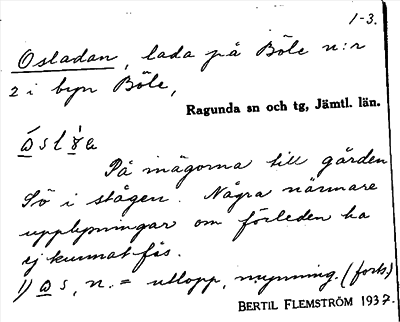 1-3.
Osladan, lada på Böle n:r
2 i byn Böle,
Ragunda sn och tg, Jämtl. län.
På inägorna till gården
Sö i stågen. Några närmare
upplysningar om förleden ha
ej kunnat fås.
1) os, n. = utlopp, mynning. (forts)
BERTIL FLEMSTRÖM 1937.